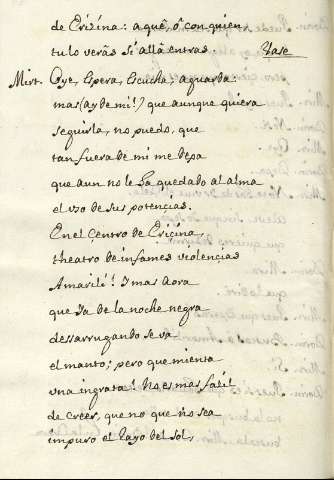 de Erizina: a què, ô con quien,
tu lo veràs si allà entras. Vase
Mirt. Oye, espera, escucha, aguarda:
mas (ay de mi!) que aunque quiera
seguirla, no puedo, que
tan fuera de mi me deja
que aun no le ha quedado al alma
el vso de sus potencias.
En el Centro de Ericina,
theatro de infames violencias
Amarili! I mas aora
que Ia de la noche negra
desarrugando se va
el manto; pero que mienta
vna ingrata! No es mas facil
de creer, que no que no sea
impuro el Rayo del Sol,